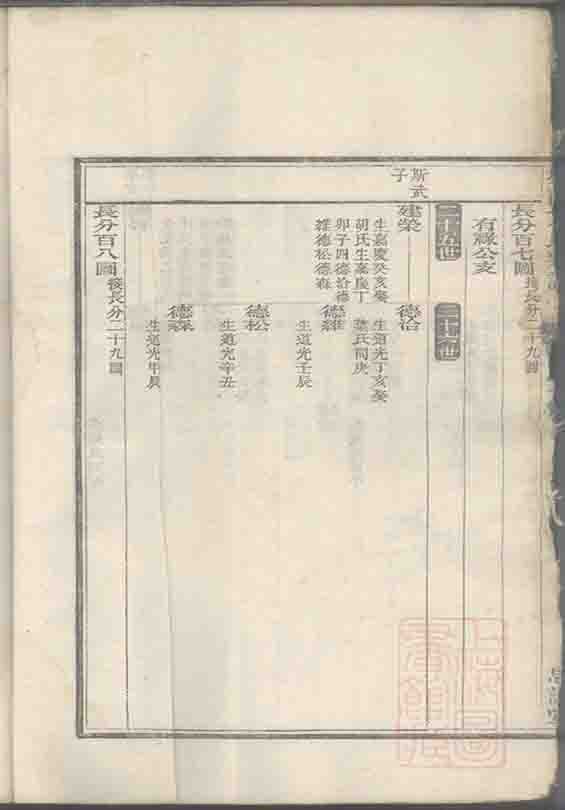 長分百七圖接長分二十九圖
有祿公支
二十五世
二十六世
斯武
子
建榮
生嘉慶癸亥娶
胡氏生嘉慶丁
卯子四德洽德
雒德松德森
德洽
生道光丁亥娶
葉氏同庚
德雒
生道光壬辰
德松
生道光辛丑
德森
生道光甲辰
長分百八圖接長分二十九圖
上海圖
書館藏